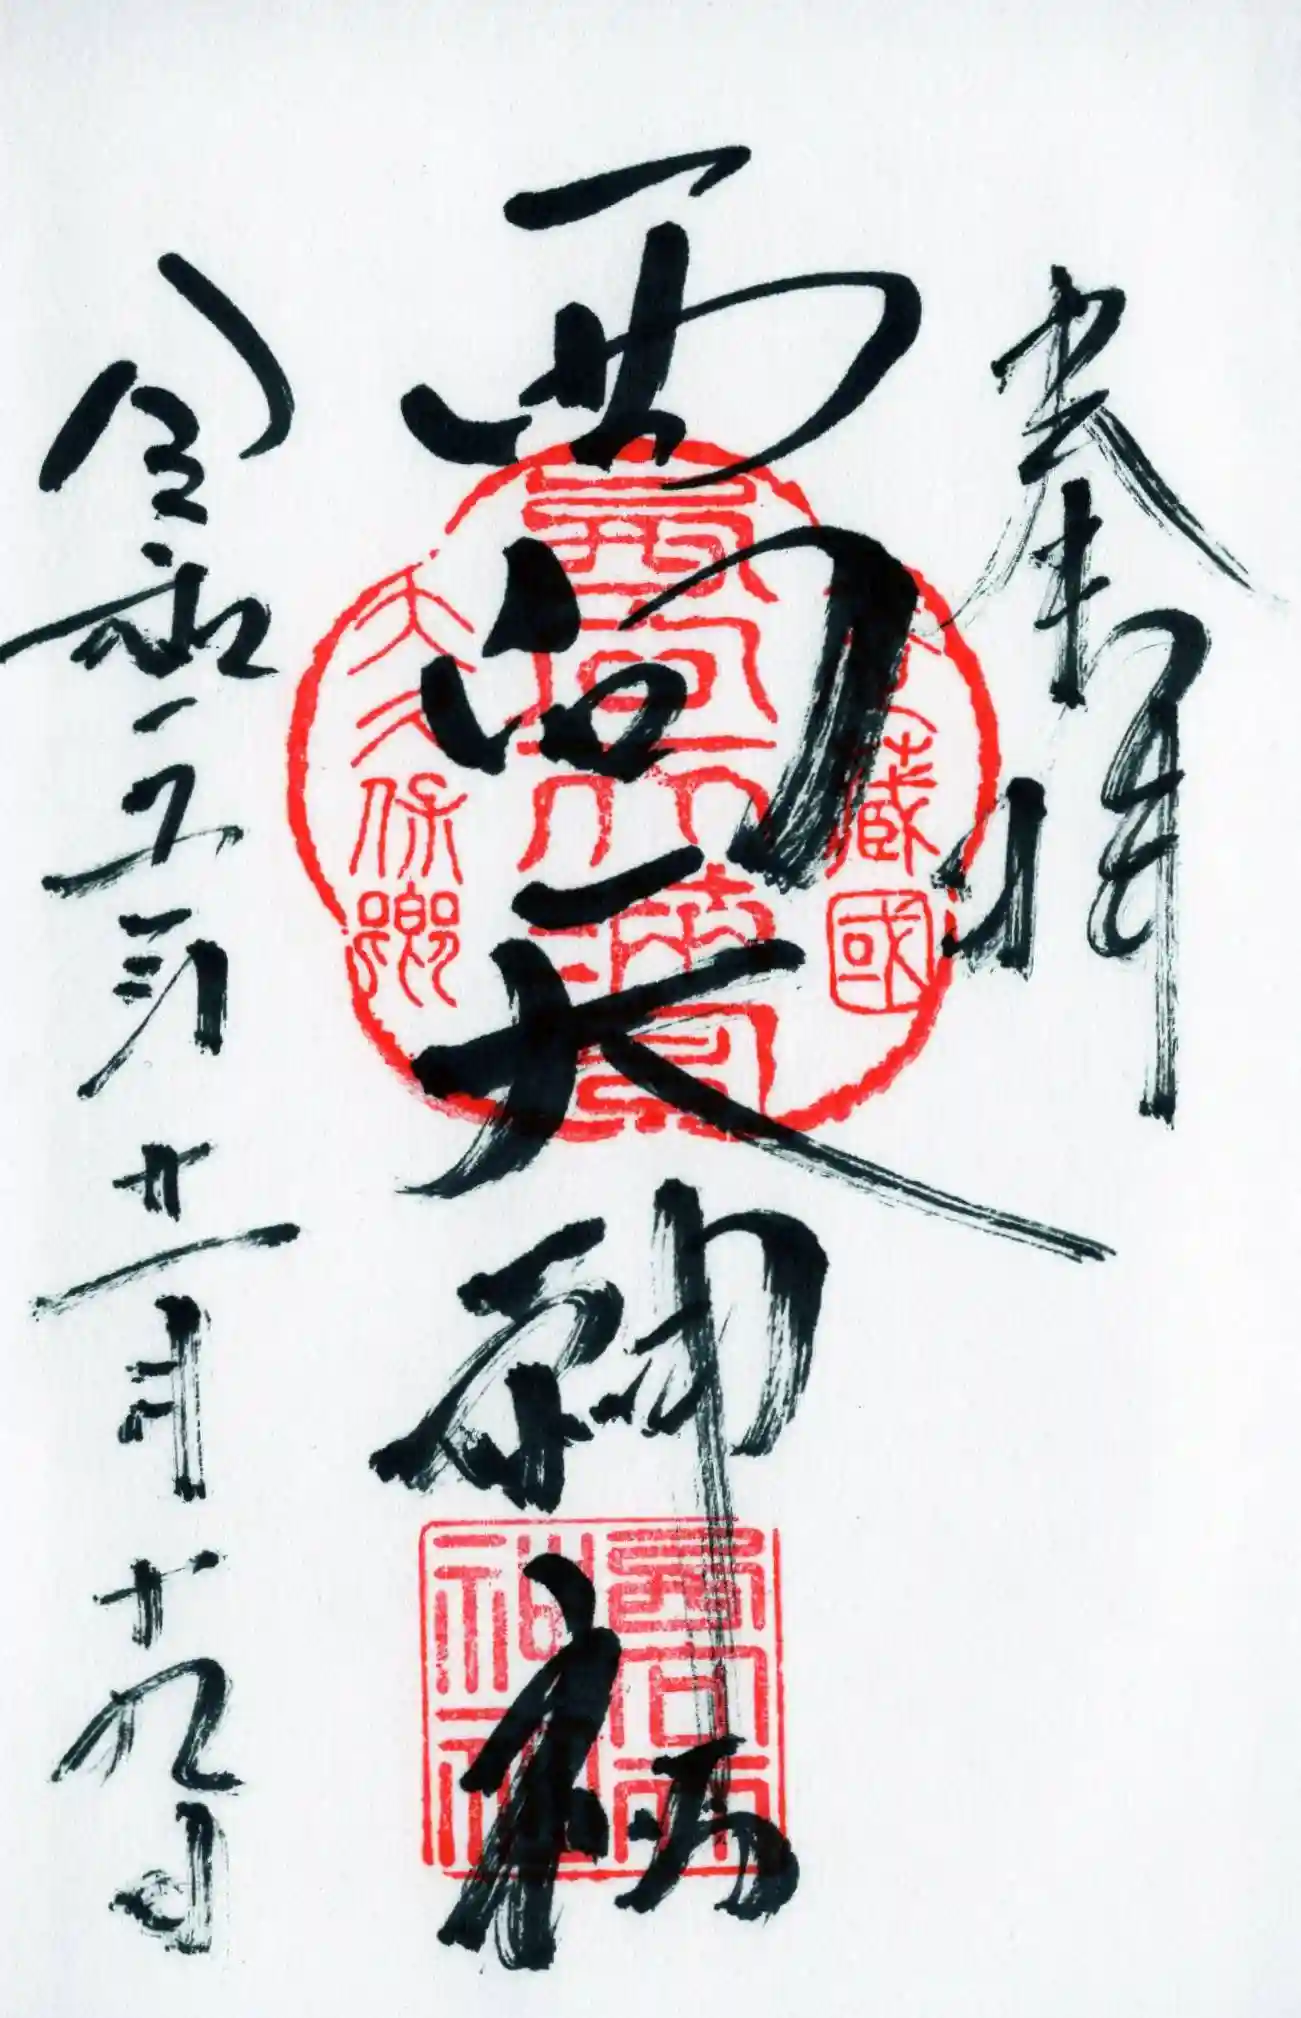 奉拝
西向天神社
武蔵國
西向天満宮
大久保郷
西向天
神社
令和五 月十九日